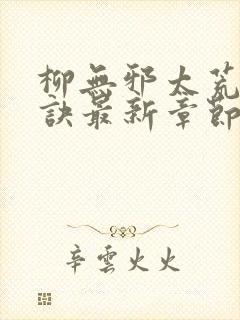 柳無邪太荒
訣最新章節
辛雲火火